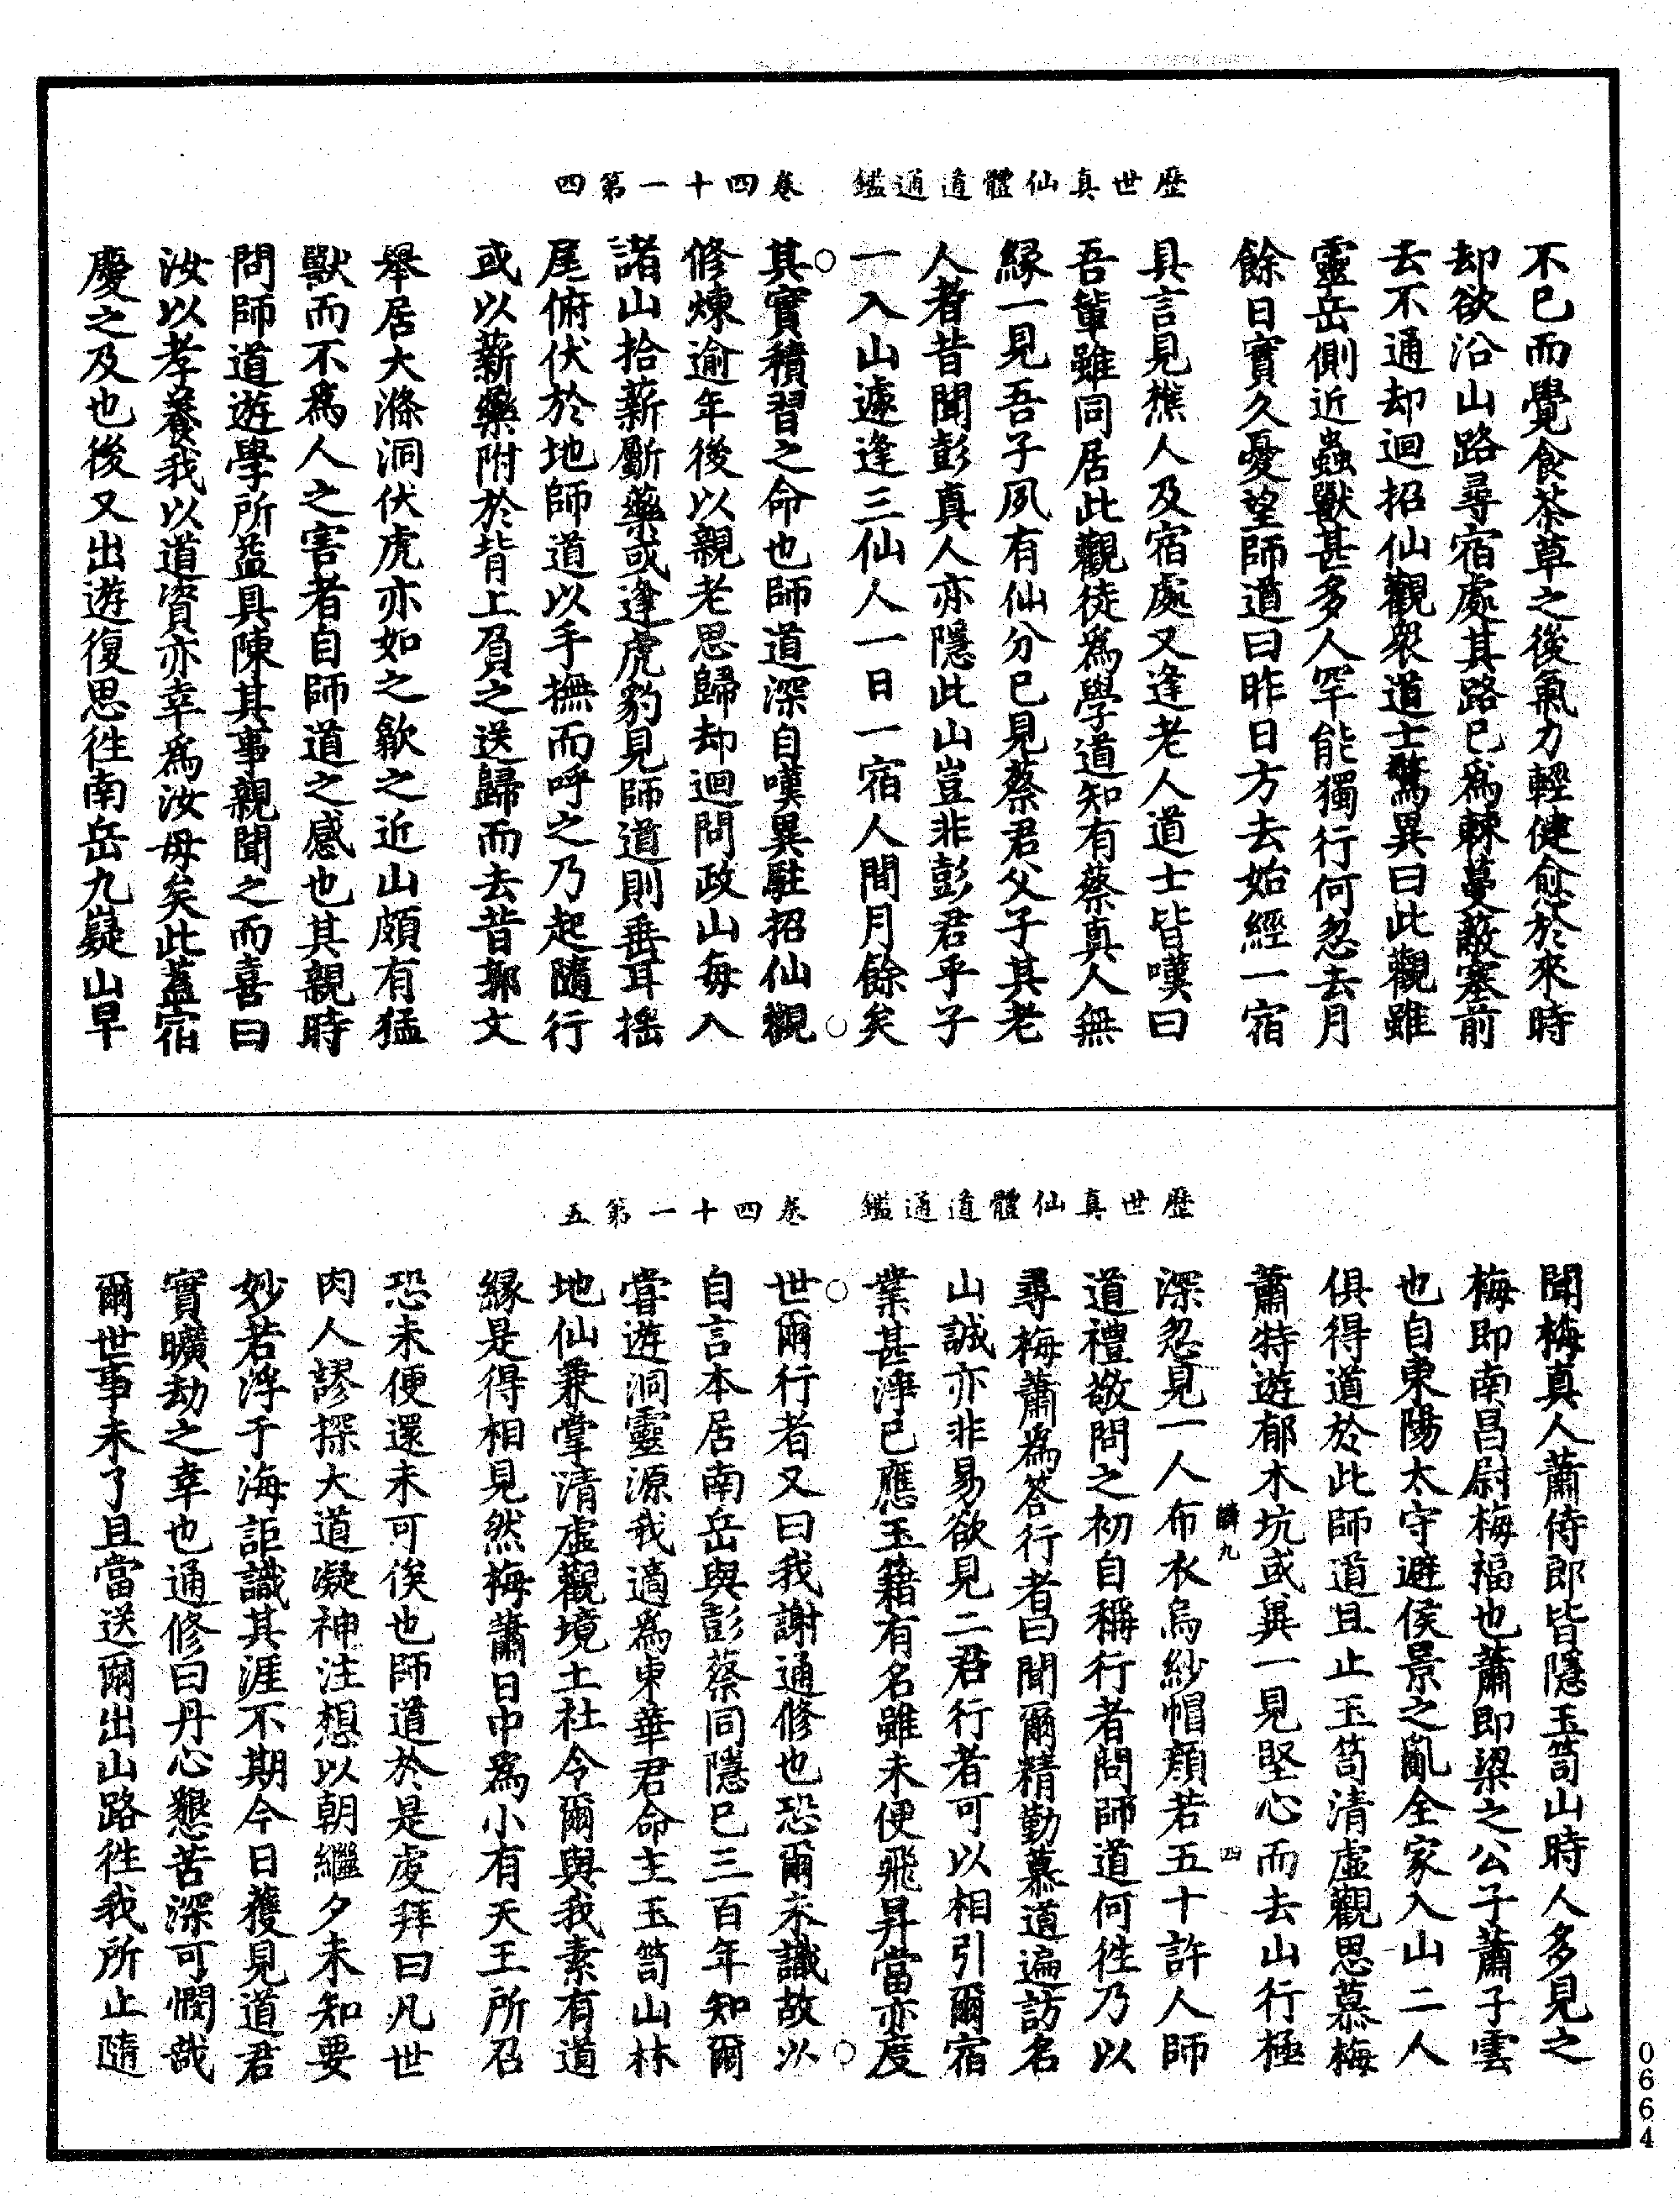 歷世真仙體道通鑑　卷四十一第四
不已而覺食茶草之後氣力輕健愈於來時
却欲沿山路尋宿處其路已為棘蔓蔽塞前
去不通却迴招仙觀衆道士驚異曰此觀雖
靈岳側近蟲獸甚多人罕能獨行何忽去月
餘日實久憂望師道曰昨日方去始經一宿
具言見樵人及宿處又逢老人道士皆嘆曰
吾輩雖同居此觀徒為學道知有蔡真人無
緣一見吾子夙有仙分已見蔡君父子其老
人者昔聞彭真人亦隱此山豈非彭君乎子
一入山遽逢三仙人一日一宿人間月餘矣
其實積習之命也師道深自嘆異駐招仙觀
修煉逾年後以親老思歸却迴問政山每入
諸山拾薪斸藥或逢虎豹見師道則垂耳搖
尾俯伏於地師道以手撫而呼之乃起隨行
或以薪藥附於背上負之送歸而去昔郭文
舉居大滌洞伏虎亦如之歙之近山頗有猛
獸而不為人之害者自師道之感也其親時
問師道遊學所益具陳其事親聞之而喜曰
汝以孝養我以道資亦幸為汝母矣此蓋宿
慶之及也後又出遊復思往南岳九嶷山早
歷世真仙體道通鑑　卷四十一第五
聞梅真人蕭侍郎皆隱玉笥山時人多見之
梅即南昌尉梅福也蕭即梁之公子蕭子雲
也自東陽太守避侯景之亂全家入山二人
俱得道於此師道且止玉笥清虛觀思慕梅
蕭特遊郁木坑或冀一見堅心而去山行極
鱗九　四
深忽見一人布衣烏紗帽顏若五十許人師
道禮敬問之初自稱行者問師道何往乃以
尋梅蕭為答行者曰聞爾精勤慕道遍訪名
山誠亦非易欲見二君行者可以相引爾宿
業甚淨已應玉籍有名雖未便飛昇當亦度
世爾行者又曰我謝通修也恐爾未識故以
自言本居南岳與彭蔡同隱已三百年知爾
嘗遊洞靈源我適為東華君命主玉笥山林
地仙兼掌清虛觀境土社令爾與我素有道
緣是得相見然梅蕭日中為小有天王所召
恐未便還未可俟也師道於是虔拜曰凡世
肉人謬探大道凝神注想以朝繼夕未知要
妙若浮于海詎識其涯不期今日獲見道君
實曠劫之幸也通修曰丹心懇苦深可憫哉
爾世事未了且當送爾出山路往我所止隨
0664